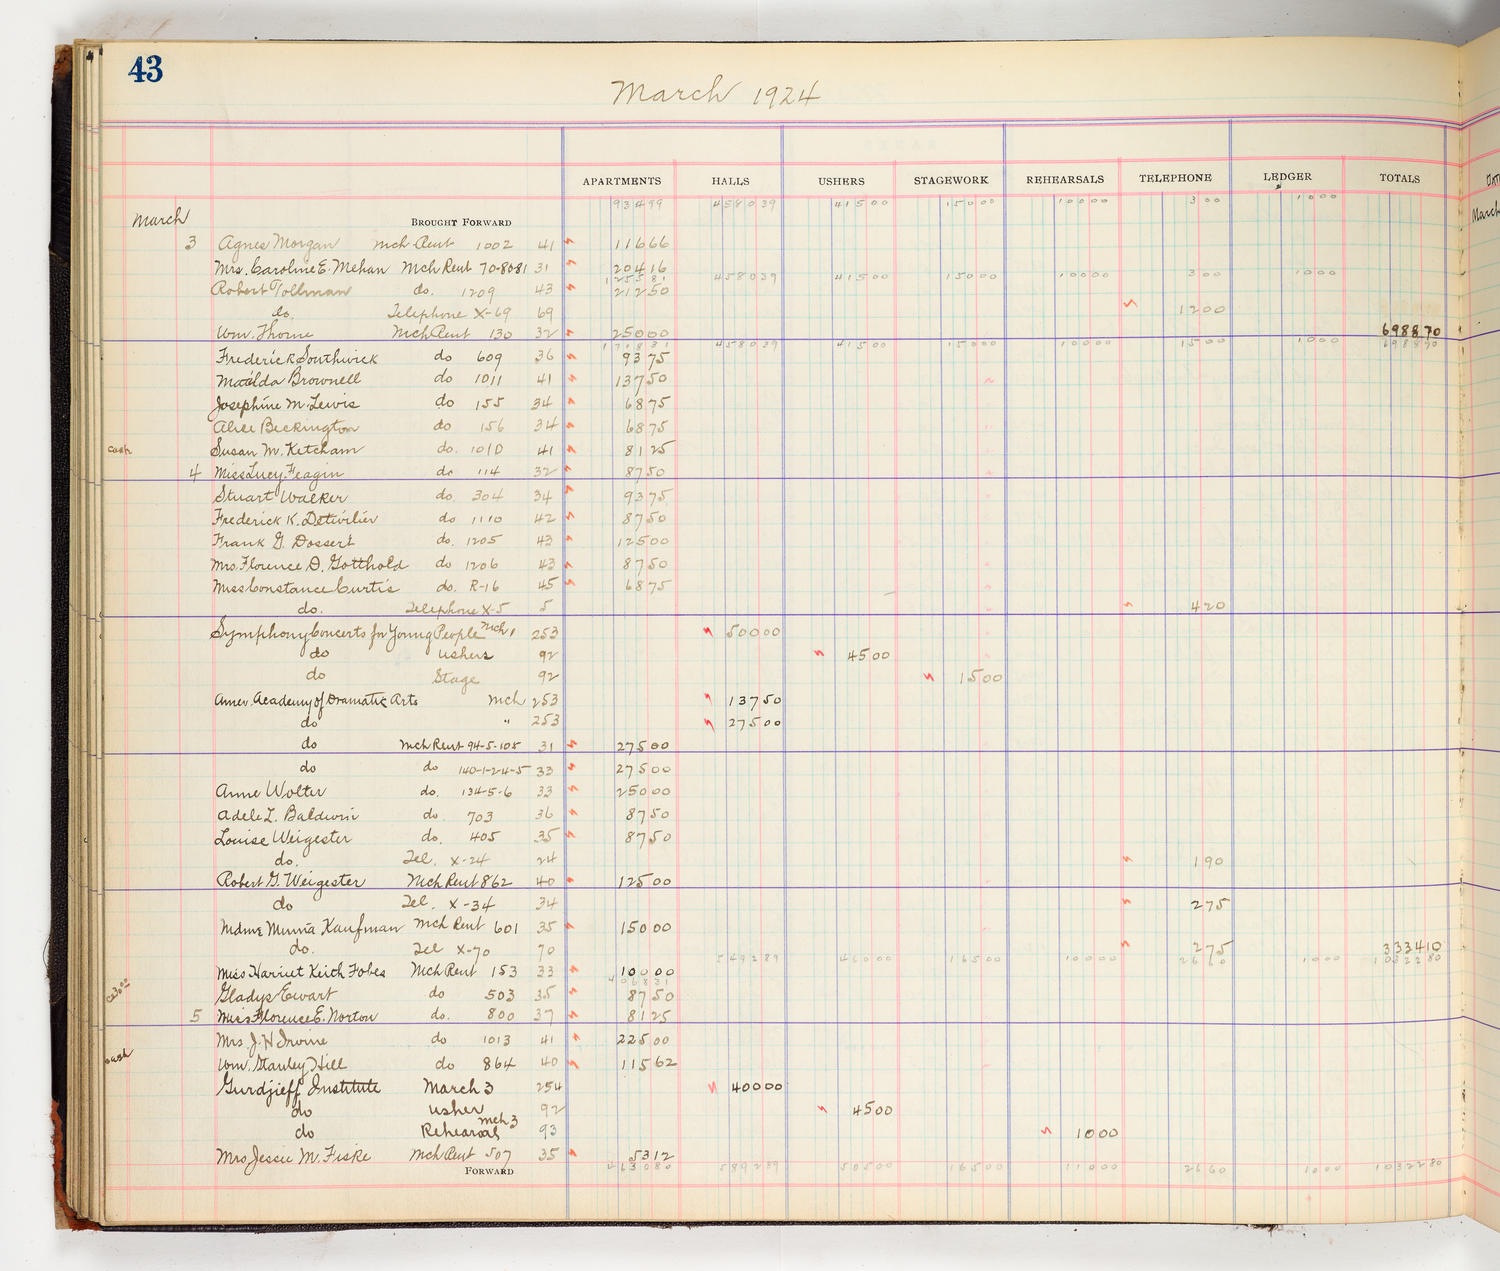 43
March 1924
APARTMENTS HALLS USHERS STAGEWORK REHEARSALS TELEPHONE LEDGER TOTALS
March BROUGHT FORWARD 93499 458039 41500 15000 10000 300 1000
3 Agnes Morgan Mch Rent 1002 41 11666
Mrs. Caroline E. Mehan Mch Rent 70-80-81 31 20416
125581 458039 41500 15000 10000 300 1000
Robert Tollman do. 1209 43 21250
do. Telephone X-69 69 1200
Wm. Thorne Mch Rent 130 32 25000 6988.70
171831 458039 41500 15000 10000 1500 1000 698870
Frederick Southwick do 609 36 9375
Matilda Brownell do 1011 41 13750
Josephine M. Lewis do 155 34 6875
Alice Beckington do 156 34 6875
cash Susan M. Ketcham do. 1010 41 8125
4 Miss Lucy Feagin do 114 32 8750
Stuart Walker do. 304 34 9375
Frederick K. Detwilier do 1110 42 8750
Frank G. Dossert do. 1205 43 12500
Mrs. Florence D. Gotthold do 1206 43 8750
Miss Constance Curtis do. R-16 45 6875
do. Telephone X-5 5 420
Symphony Concerts for Young People Mch 1 253 50000
do Ushers 92 4500
do Stage 92 1500
Amer. Academy of Dramatic Arts Mch 253 13750
do " 253 27500
do Mch Rent 94-5-105 31 27500
do do 140-1-2-4-5 33 27500
Anne Wolter do. 134-5-6 33 25000
Adele L. Baldwin do. 703 36 8750
Louise Weigester do. 405 35 8750
do. Tel. X-24 24 190
Robert G. Weigester Mch Rent 862 40 12500
do Tel. X-34 34 275
Mdme Minna Kaufman Mch Rent 601 35 15000
do. Tel X-70 70 275 333410
549289 46000 16500 10000 2660 1000 1032280
Miss Harriet Keith Fobes Mch Rent 153 33 10000
406831
Gladys Ewart do 503 35 8750
5 Miss Florence E. Norton do. 800 37 8125
Mrs. J. H Irvine do 1013 41 22500
cash Wm. Stanley Hill do 864 40 11562
Gurdjieff Institute March 3 254 40000
do Usher 92 4500
do Rehearsal Mch 3 93 1000
Mrs Jessie M. Fiske Mch Rent 507 35 5312
FORWARD 463080 589289 50500 16500 11000 2660 1000 1032280
March